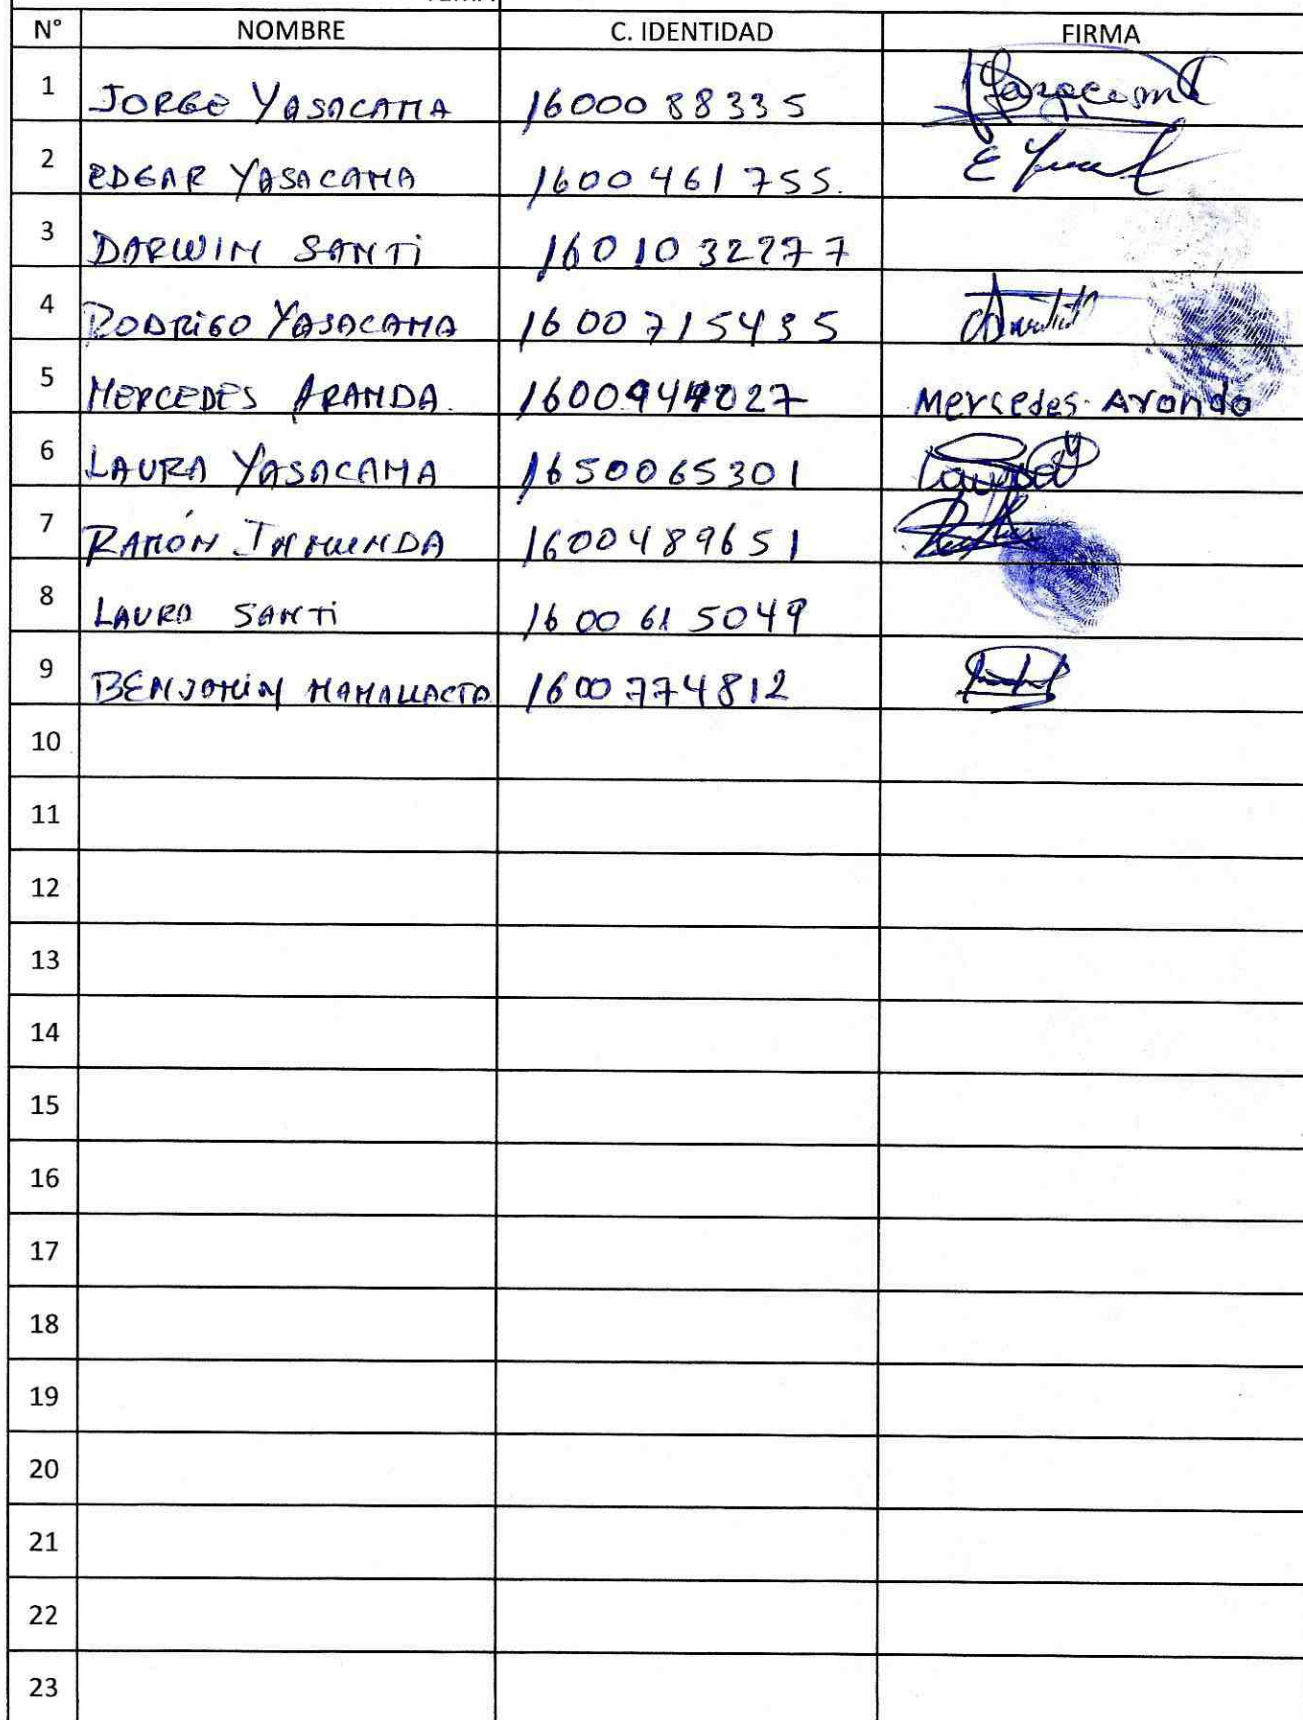 N° NOMBRE C. IDENTIDAD FIRMA
1 JORGE YASACAMA 1600088335
2 EDGAR YASACAMA 1600461755.
3 DARWIN SANTi
4 RODRiGO YASACAMA 1600715435
5 MERCEDES ARANDA. Mercedes Arando
6 LAURA YASACAMA 1650065301
7 RAMÓN 1600489651
8 LAURA SANTi 1600615049
9 BENJAMIN MAMALLACTA 1600774812
10
11
12
13
14
15
16
17
18
19
20
21
22
23